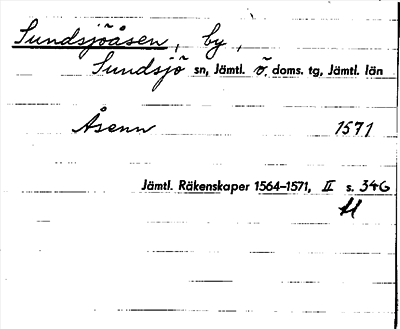 Sundsjöåsen, by,
Sundsjö sn, Jämtl. ö. doms. tg, Jämtl. län
Åsenn 1571
Jämtl. Räkenskaper 1564–1571, II s. 346